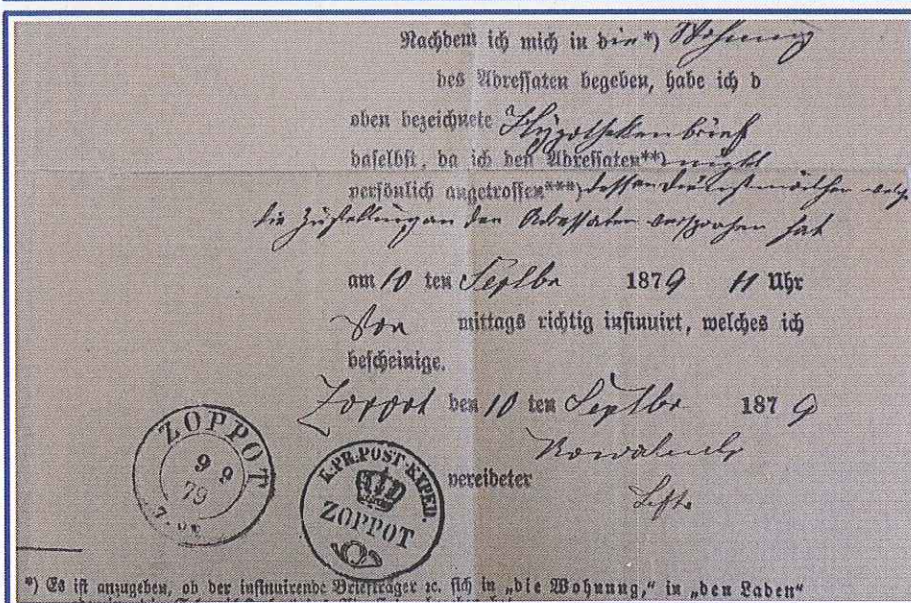 Nachdem ich mich in die*) Wohnung
des Adressaten begeben, habe ich d
oben bezeichnete Hypothekenbrief
daselbst, da ich den Adressaten**) nicht
persönlich angetroffen***) dessen Dienstmädchen welche
die Zustellung an den Adressaten versprochen hat
am 10 ten Septbr 1879 11 Uhr
Vor mittags richtig insinuirt, welches ich
bescheinige.
Zoppot den 10 ten Septbr 1879
vereideter
ZOPPOT
9 9
79
K.PR.POST-EXPED.
ZOPPOT
*) Es ist anzugeben, ob der insinuirende Briefträger ꝛc. sich in „die Wohnung," in „den Laden"